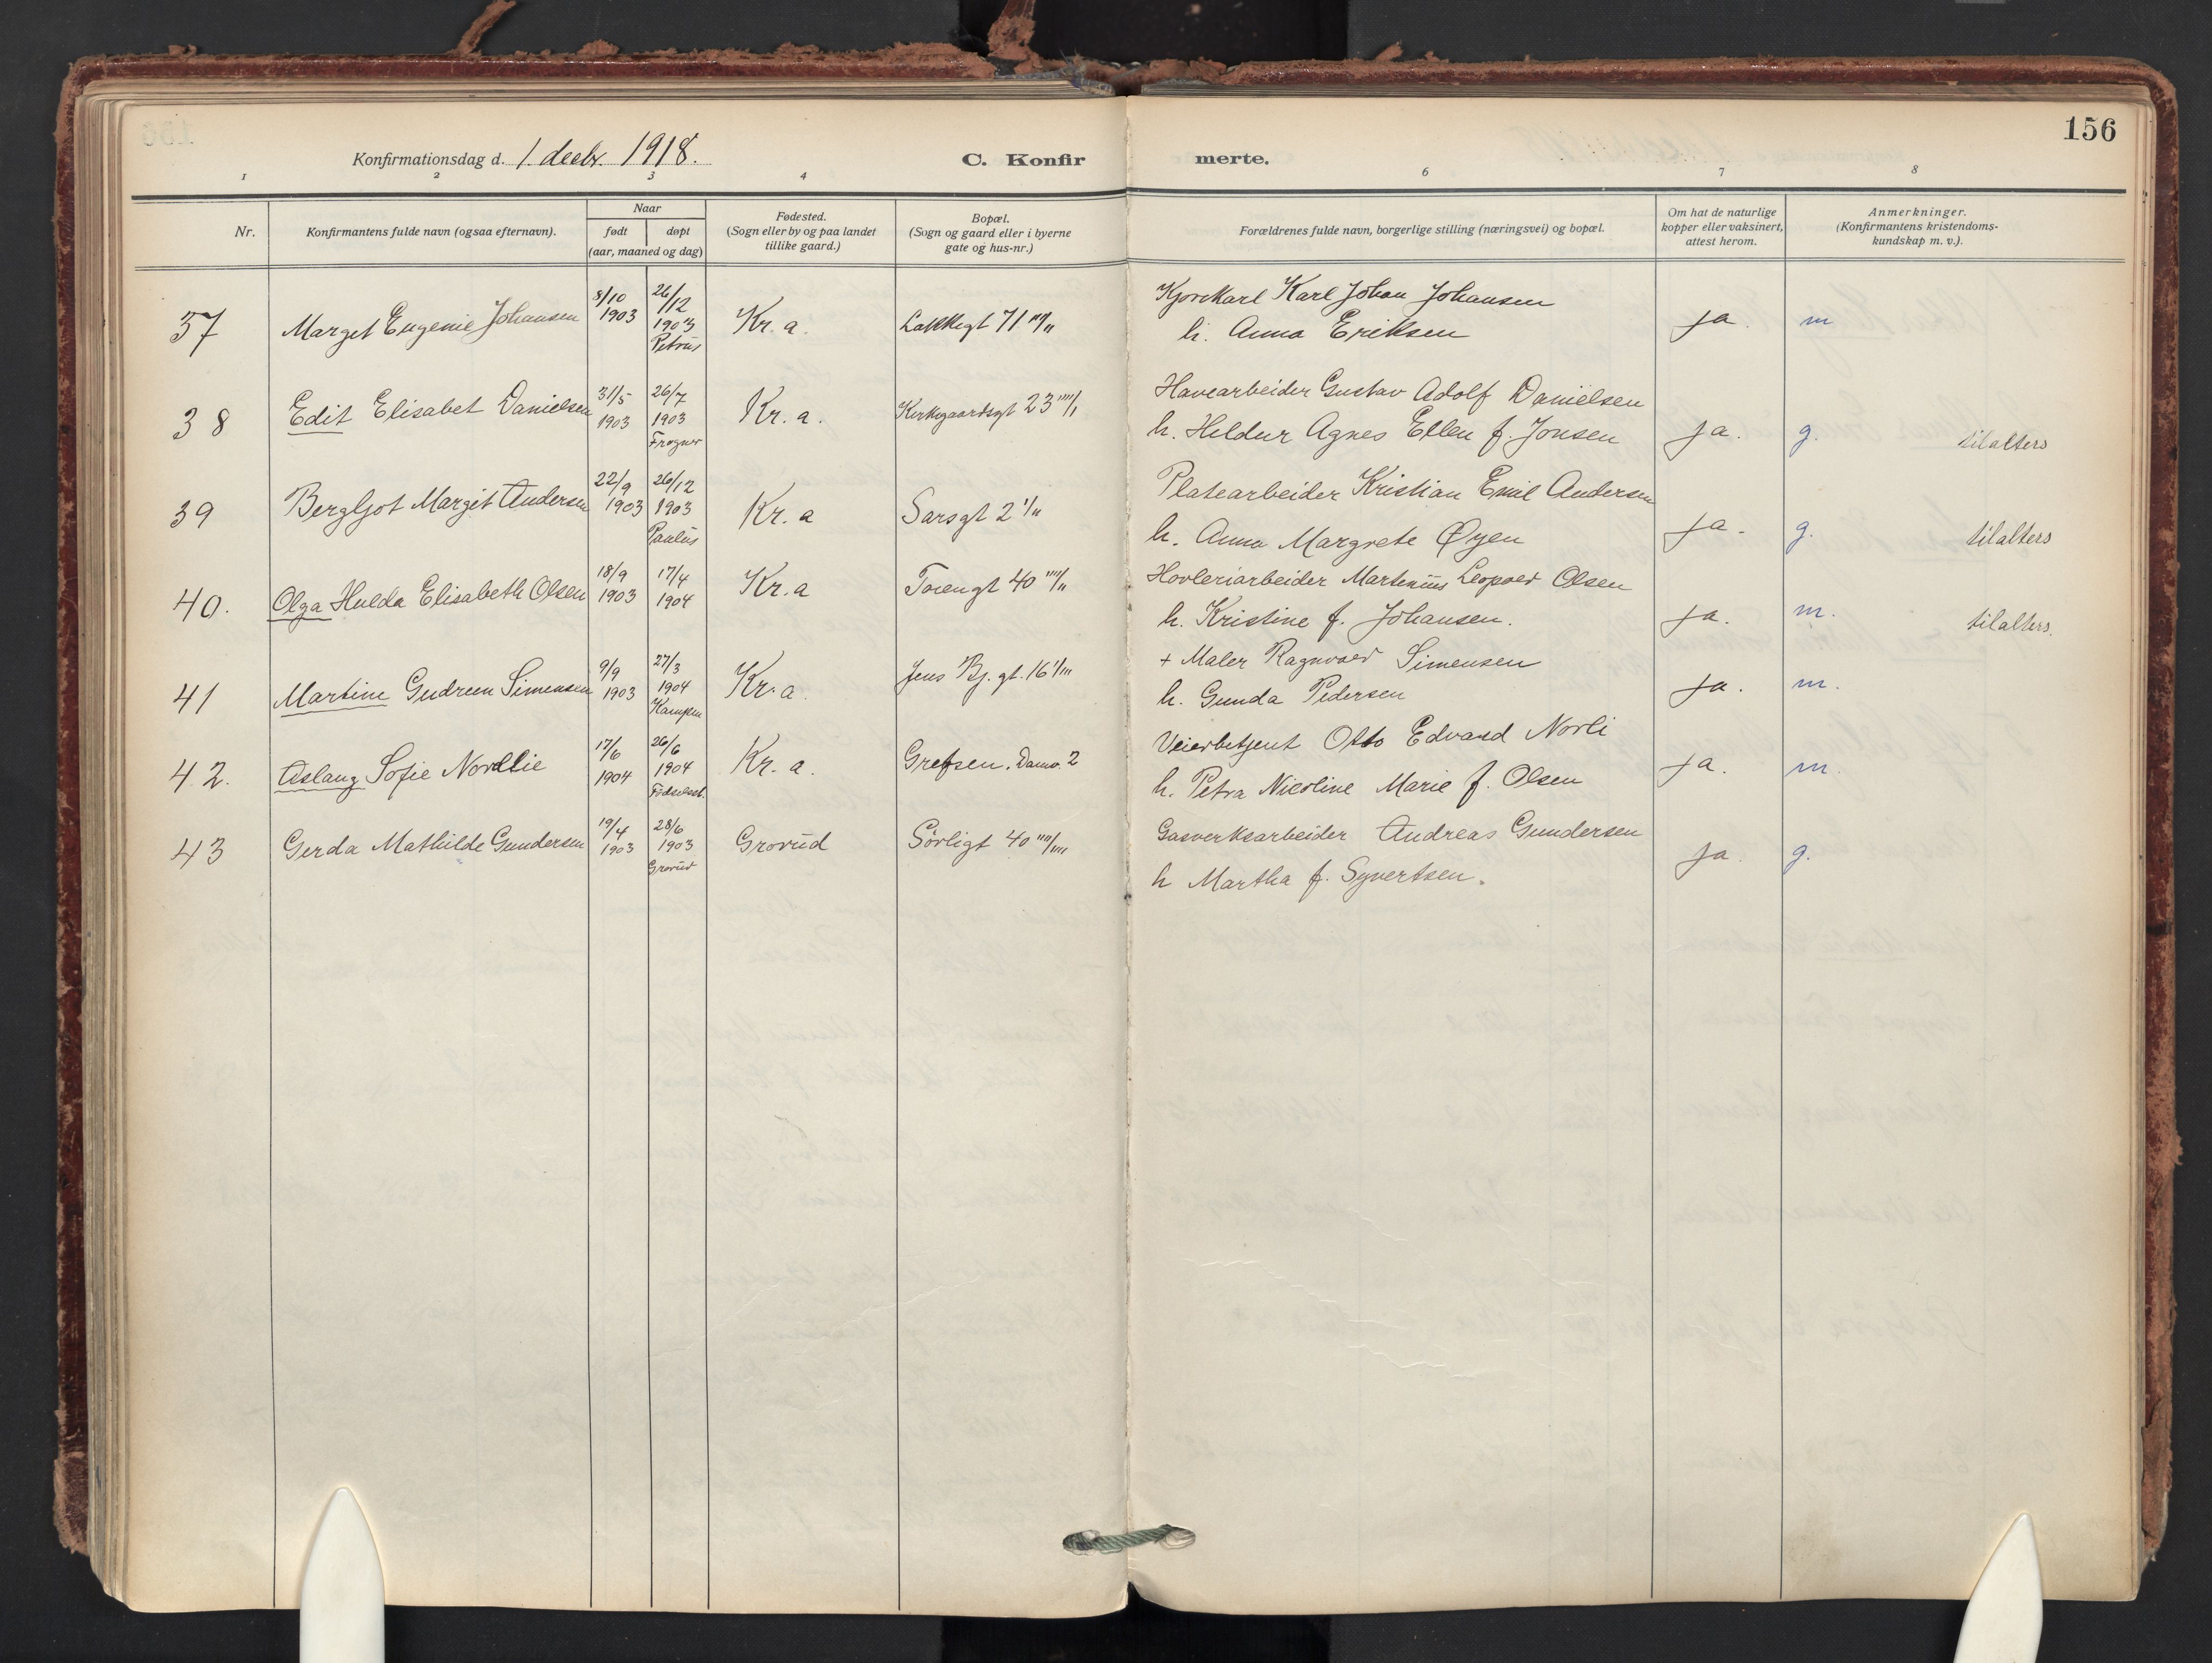 156
Konfirmationsdag d. 1 decbr. 1918.
C. Konfirmerte.
1 2 3 4 6 7 8
Nr.
Konfirmantens fulde navn (ogsaa efternavn).
Naar
født
døpt
(aar, maaned og dag)
Fødested.
(Sogn eller by og paa landet
tillike gaard.)
Bopæl.
(Sogn og gaard eller i byerne
gate og hus-nr.)
Forældrenes fulde navn, borgerlige stilling (næringsvei) og bopæl.
Om hat de naturlige
kopper eller vaksinert,
attest herom.
Anmerkninger.
(Konfirmantens kristendoms-
kundskap m. v.).
37 Marget Eugenie Johansen 8/10 1903 26/12 1903 Petrus Kr. a. Lakkegt 71 Karl Johan Johansen
h. Anna Eriksen ja. m
38 Edit Elisabet Danielsen 31/5 1903 26/7 1903 Frogner Kr. a. Kirkegaardsgt 23 Havearbeider Gustav Adolf Danielsen
h. Heldur Agnes Ellen f. Jonsen ja. g. til alters
39 Bergljot Margit Andersen 22/9 1903 26/12 1903 Paulus Kr. a Sarsgt 2 Platearbeider Kristian Emil Andersen
h. Anna Margrete Øyen ja. g. til alters
40. Olga Hulda Elisabeth Olsen 18/9 1903 17/4 1904 Kr. a 40 Hovleriarbeider Martenius Leopold Olsen
h. Kristine f. Johansen. ja. m. til alters.
41 Martine Gudrun Simensen 9/9 1903 27/3 1904 Kampen Kr. a. Jens Bj. gt. 16 + Maler Ragnvald Simensen
h. Gunda Pedersen ja. m.
42. Aslaug Sofie Nordlie 17/6 1904 26/6 1904 Fødselsst. Kr. a. Grefsen. 2 Veierbetjent Otto Edvard Norli
h. Petra Nicoline Marie f. Olsen ja. m.
43 Gerda Mathilde Gundersen 19/4 1903 28/6 1903 Grorud Grorud Sørligt 40 Gasverksarbeider Andreas Gundersen
h Martha f. Syvertsen. ja. g.